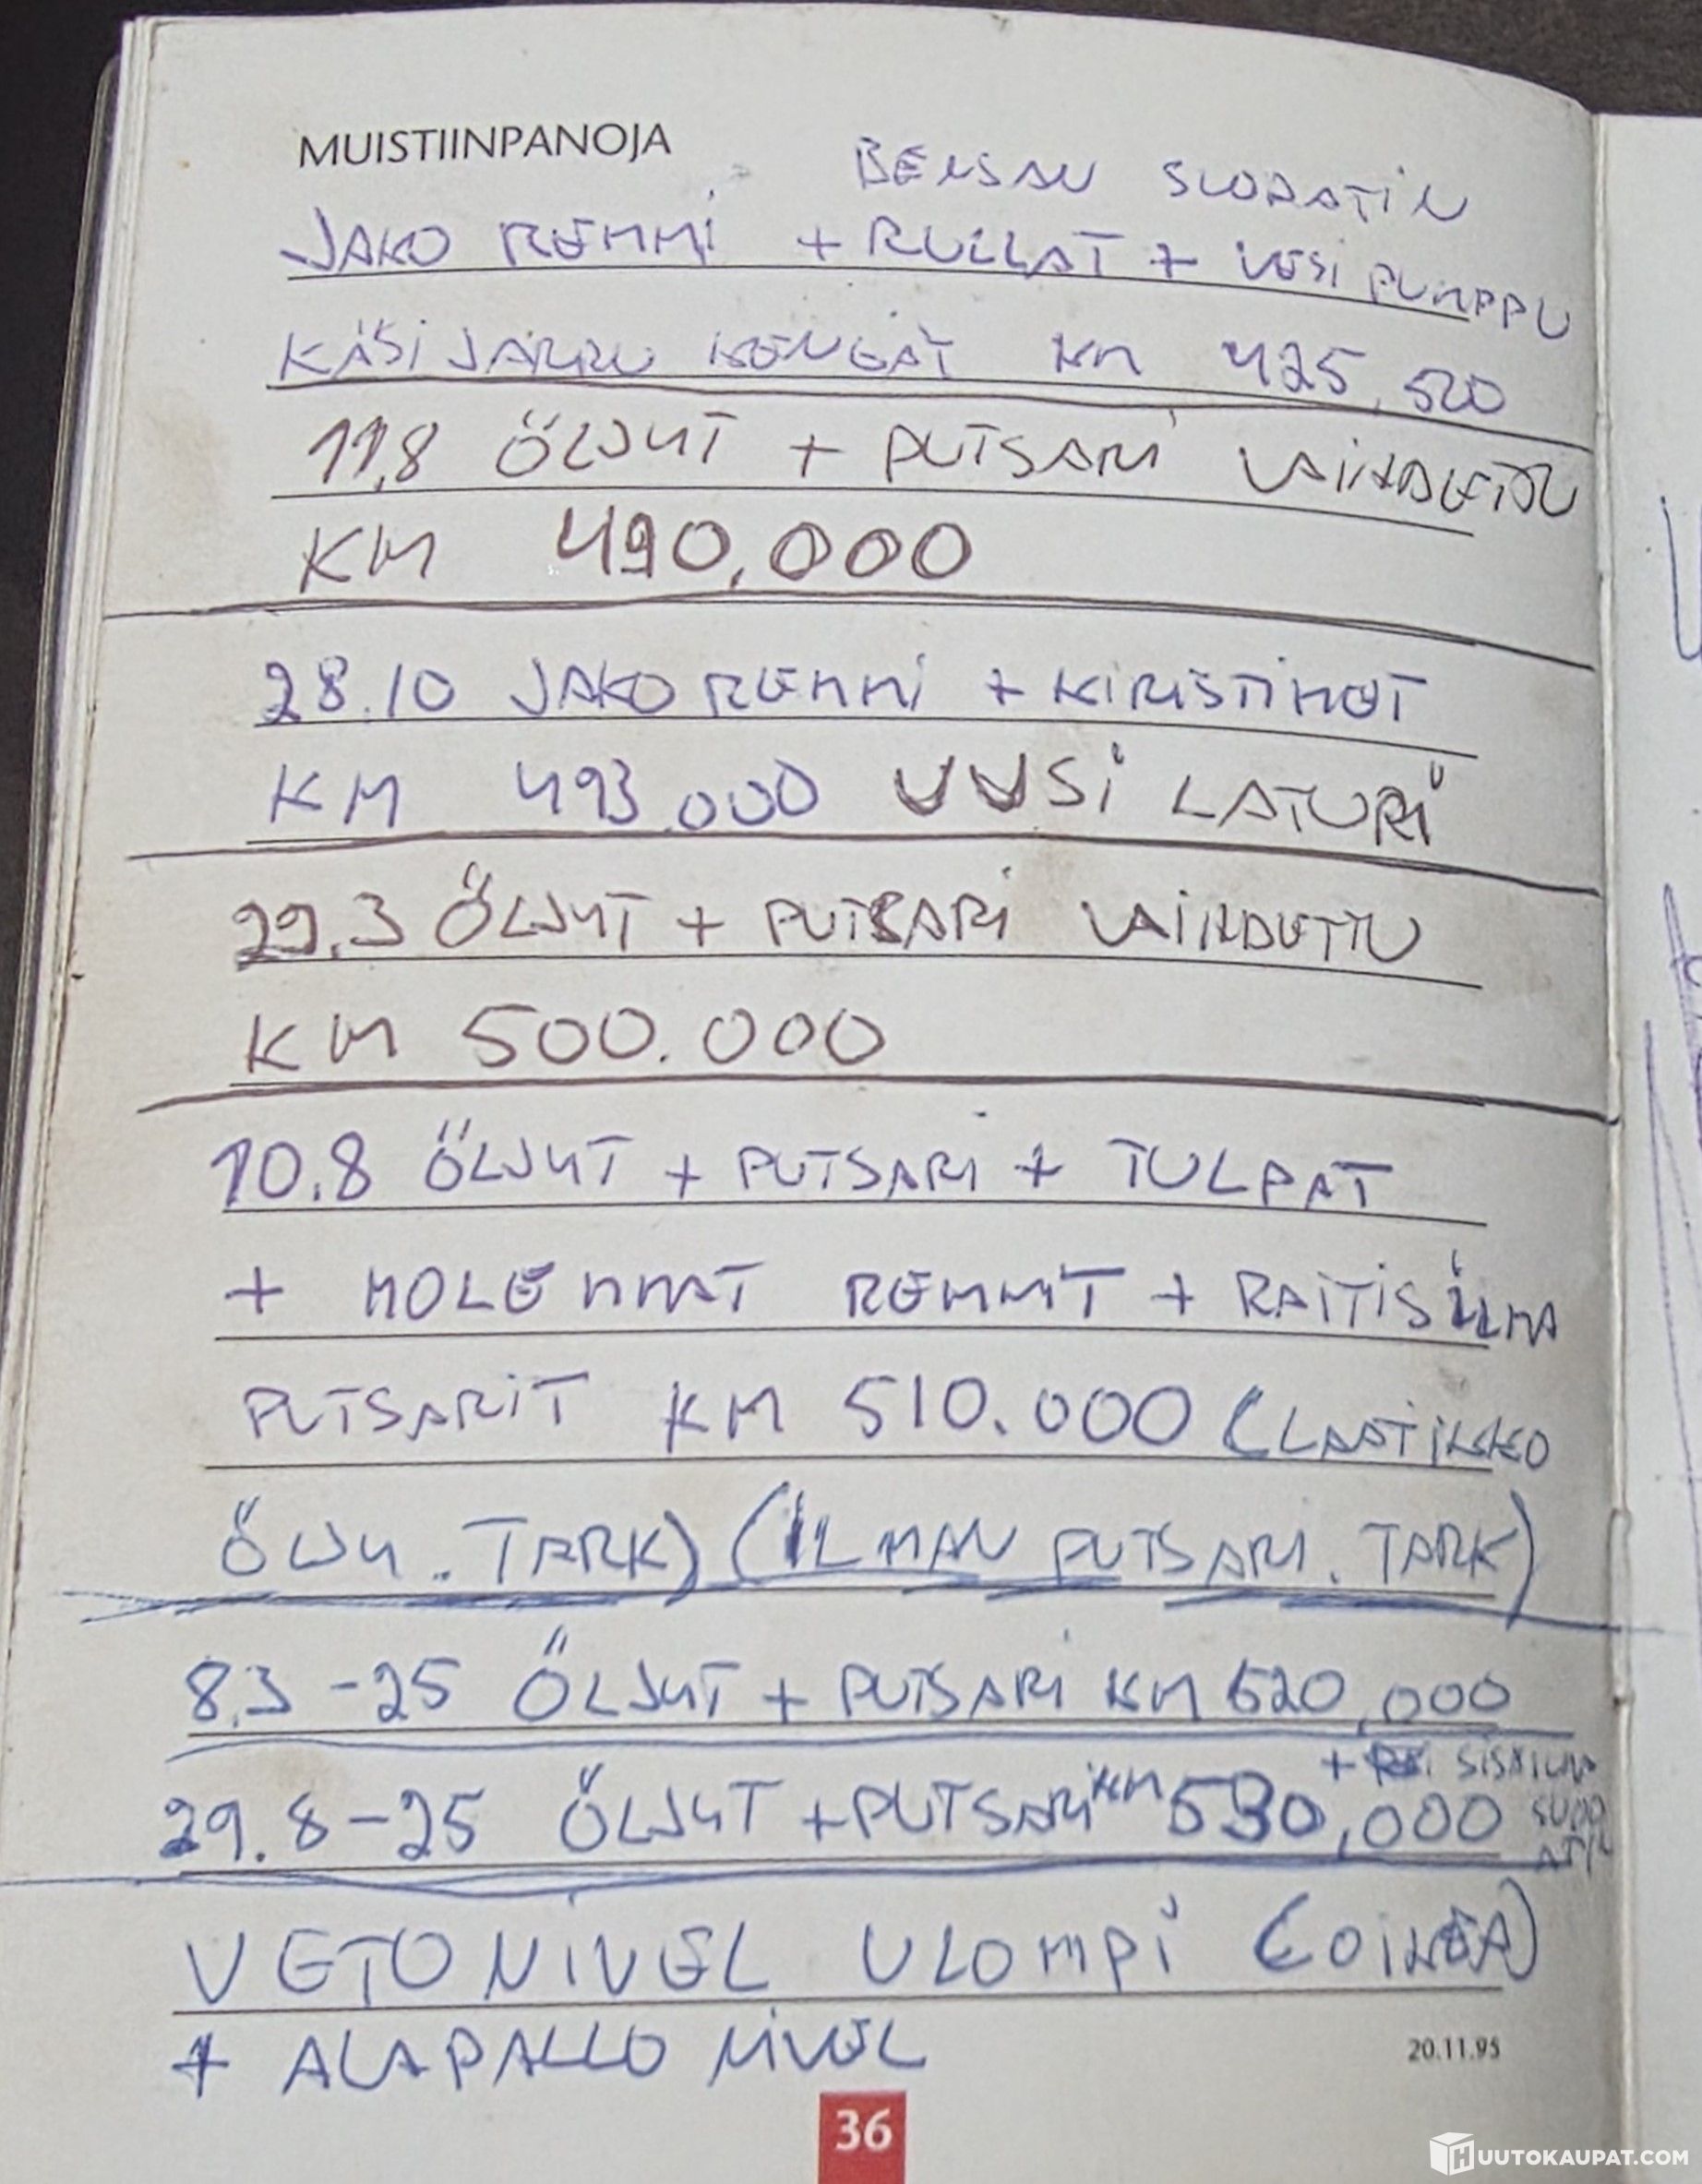 MUISTIINPANOJA
BENSAN SUODATIN
JAKO REMMI + RULLAT + VESI PUMPPU
KÄSI JARRU KENGÄT KM 425,520
11,8 ÖLJYT + PUTSARI VAIHDETTU
KM 490,000
28.10 JAKO REMMI + KIRISTIMET
KM 493.000 UUSI LATURI
29.3 ÖLJYT + PUTSARI VAIHDETTU
KM 500.000
10.8 ÖLJYT + PUTSARI + TULPAT
+ MOLEMMAT REMMIT + RAITISILMA
PUTSARIT KM 510.000 (LAATIKKO
ÖLJY . TARK) (ILMAN PUTSARI . TARK)
8.3 -25 ÖLJYT + PUTSARI KM 520,000
+ SISÄILMA
29.8-25 ÖLJYT + PUTSARI KM 530,000 SUOD
ATIN
VETO NIVEL ULOMPI (OIKEA)
+ ALAPALLO NIVEL
20.11.95
36
HUUTOKAUPAT.COM